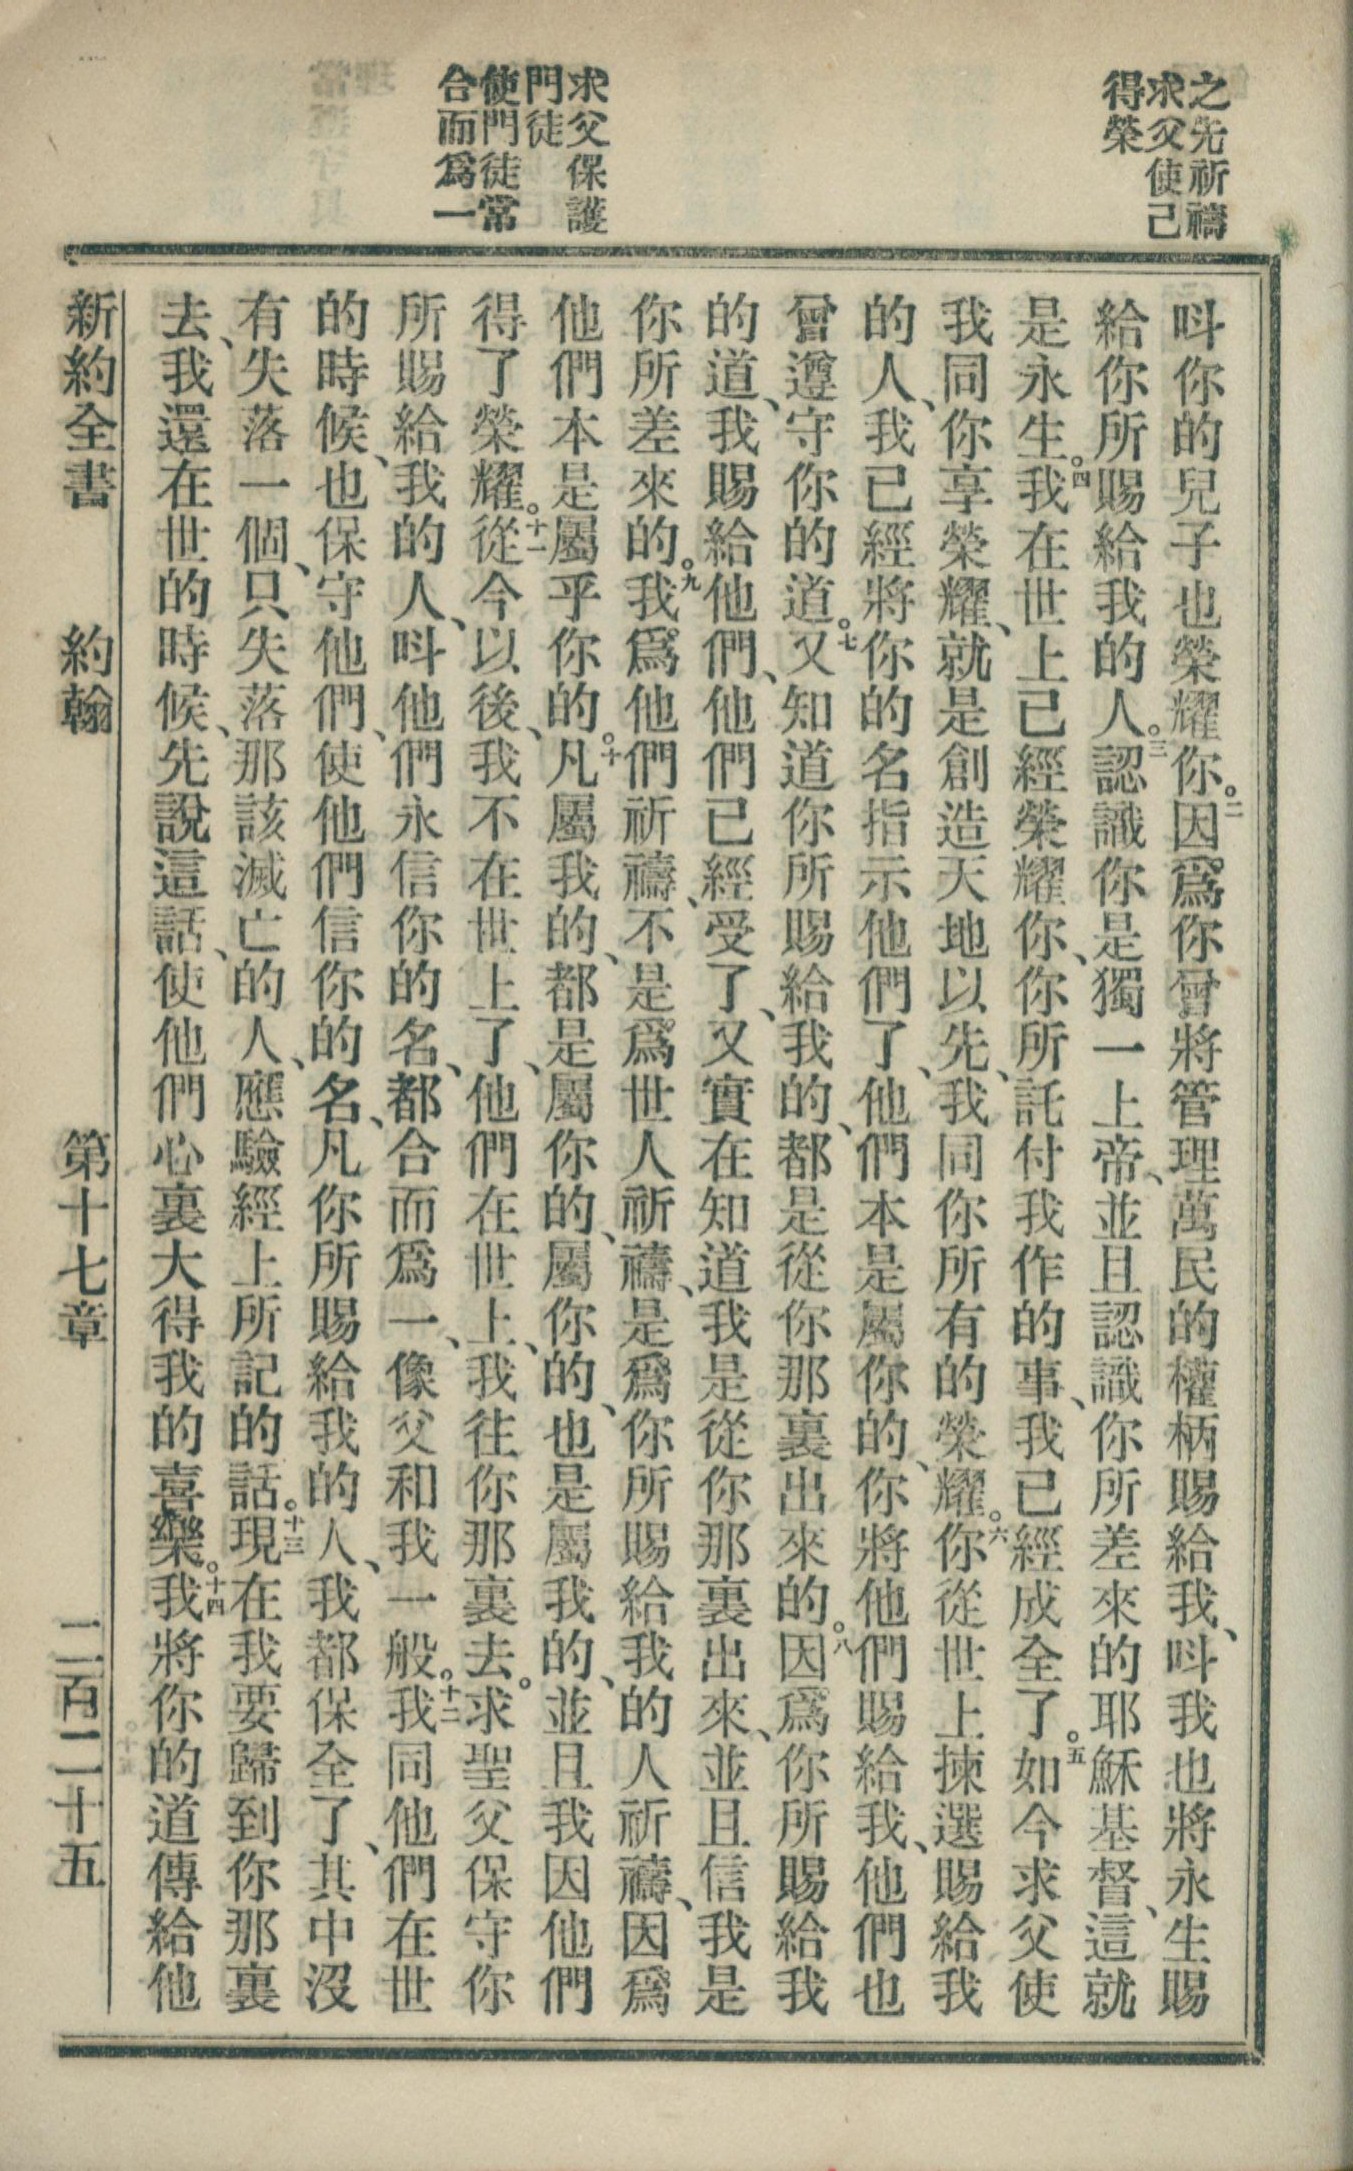 之先祈禱
求父使己
得榮
求父保護
門徒
使門徒常
合而爲一
呌你的兒子也榮耀你。二因爲你曾將管理萬民的權柄賜給我、呌我也將永生賜
給你所賜給我的人。三認識你是獨一上帝、並且認識你所差來的耶穌基督、這就
是永生。四我在世上已經榮耀你、你所託付我作的事、我已經成全了。五如今求父使
我同你享榮耀、就是創造天地以先、我同你所有的榮耀。六你從世上揀選賜給我
的人、我已經將你的名指示他們了、他們本是屬你的、你將他們賜給我、他們也
曾遵守你的道。七又知道你所賜給我的、都是從你那裏出來的。八因爲你所賜給我
的道、我賜給他們、他們已經受了、又實在知道我是從你那裏出來、並且信我是
你所差來的。九我爲他們祈禱、不是爲世人祈禱、是爲你所賜給我的人祈禱、因爲
他們本是屬乎你的。十凡屬我的、都是屬你的、屬你的、也是屬我的、並且我因他們
得了榮耀。十一從今以後、我不在世上了、他們在世上、我往你那裏去。求聖父保守你
所賜給我的人、呌他們永信你的名、都合而爲一、像父和我一般。十二我同他們在世
的時候、也保守他們、使他們信你的名、凡你所賜給我的人、我都保全了、其中沒
有失落一個、只失落那該滅亡的人、應驗經上所記的話。十三現在我要歸到你那裏
去、我還在世的時候、先說這話、使他們心裏大得我的喜樂。十四我將你的道傳給他
新約全書 約翰 第十七章 二百二十五